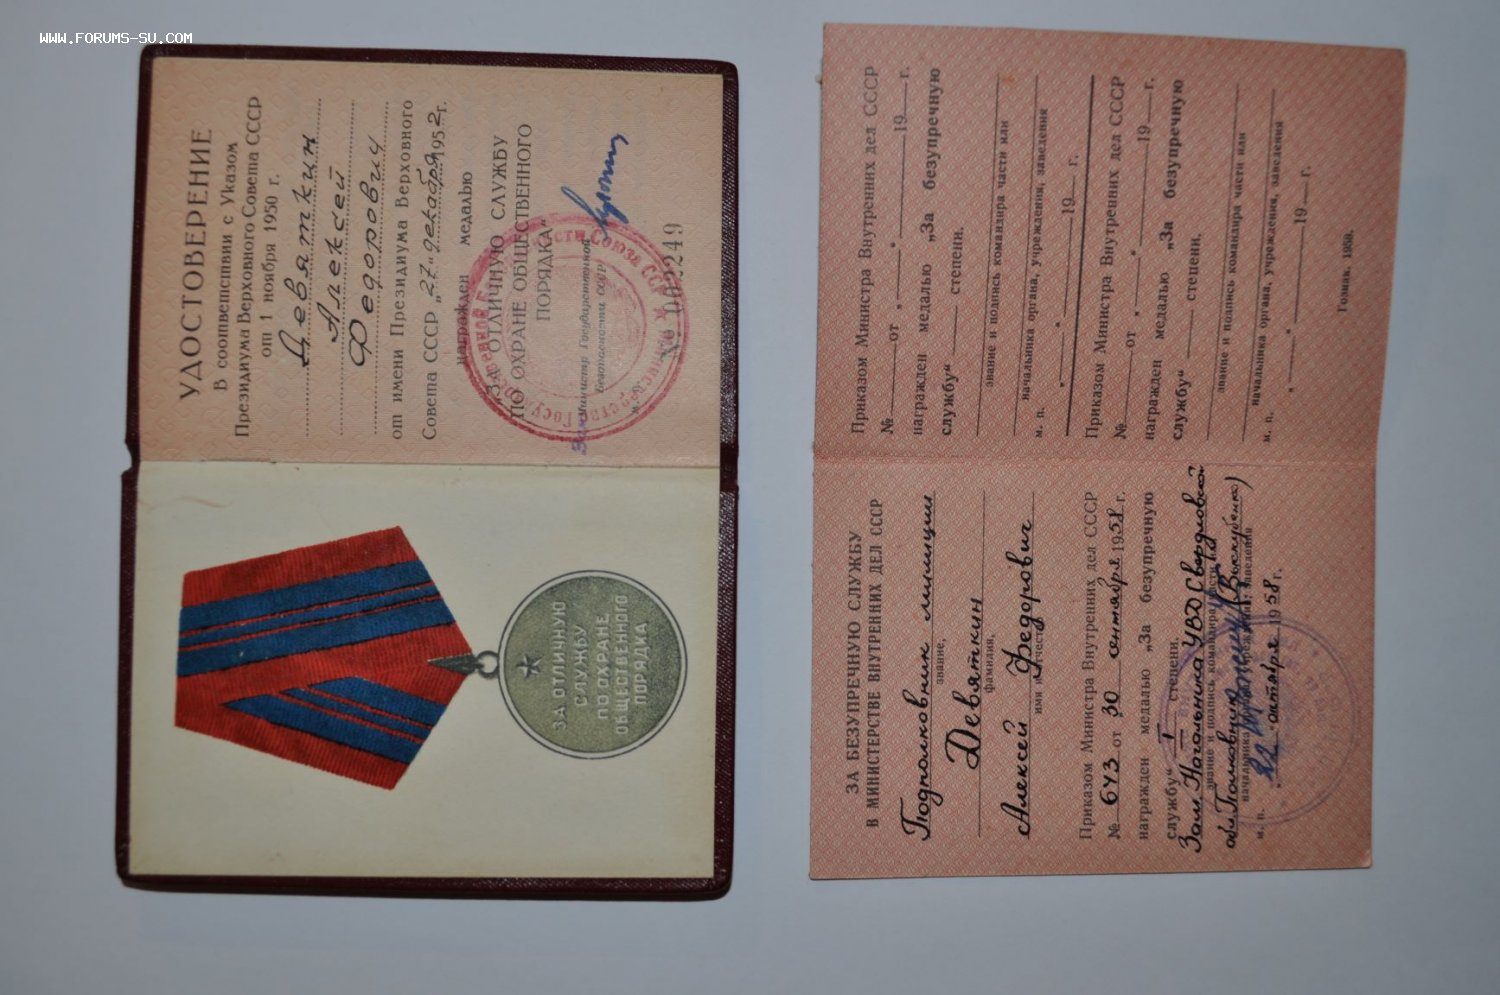 WWW.FORUMS-SU.COM
УДОСТОВЕРЕНИЕ
В соответствии с Указом
Президиума Верховного Совета СССР
от 1 ноября 1950 г.
Девяткин
Алексей
Федорович
от имени Президиума Верховного
Совета СССР „27" декабря 1952 г.
награжден медалью
"ЗА ОТЛИЧНУЮ СЛУЖБУ
ПО ОХРАНЕ ОБЩЕСТВЕННОГО
ПОРЯДКА"
Зам Министр Государственной
Безопасности СССР
м. п.
№ 002249
ЗА ОТЛИЧНУЮ
СЛУЖБУ
ПО ОХРАНЕ
ОБЩЕСТВЕННОГО
ПОРЯДКА
ЗА БЕЗУПРЕЧНУЮ СЛУЖБУ
В МИНИСТЕРСТВЕ ВНУТРЕННИХ ДЕЛ СССР
Подполковник милиции
звание,
Девяткин
фамилия,
Алексей Федорович
имя и отчество
Приказом Министра Внутренних дел СССР
№ 643 от 30 сентября 1958 г.
награжден медалью „За безупречную
службу" I степени.
Зам Начальника УВД Свердловской
звание и подпись командира части или
обл. Полковник
начальника учреждения, заведения
м. п. октября 1958 г.
Приказом Министра Внутренних дел СССР
№ от „ " 19 г.
награжден медалью „За безупречную
службу" степени.
звание и подпись командира части или
начальника органа, учреждения, заведения
м. п. „ " 19 г.
Приказом Министра Внутренних дел СССР
№ от „ " 19 г.
награжден медалью „За безупречную
службу" степени.
звание и подпись командира части или
начальника органа, учреждения, заведения
м. п. „ " 19 г.
Гознак. 1958.